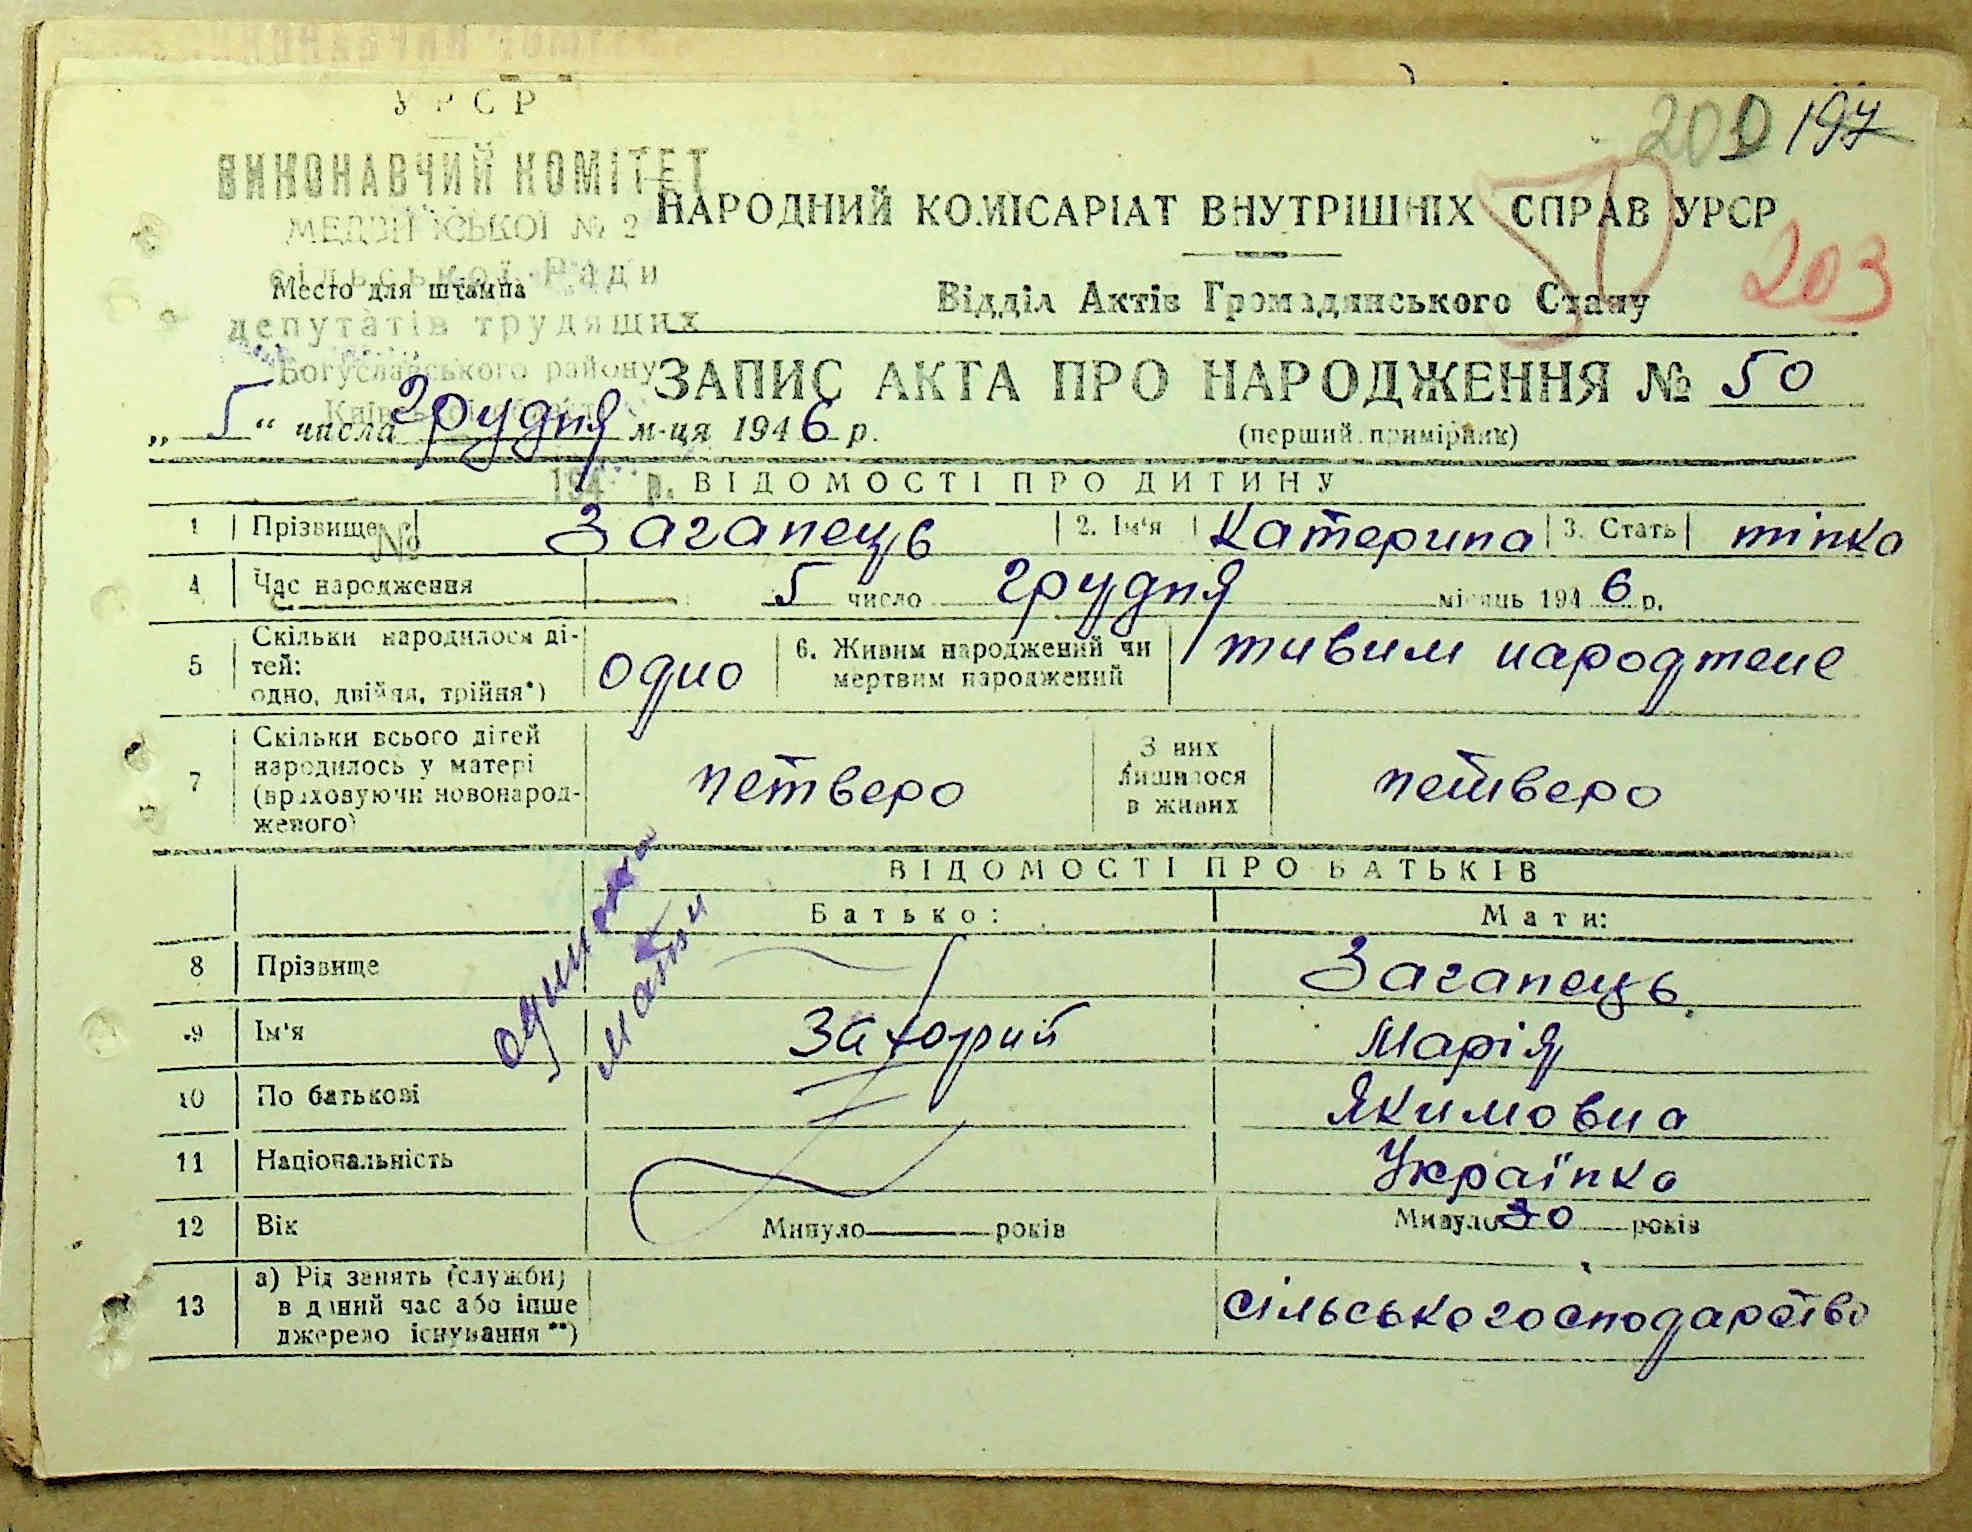 УРСР
ВИКОНАВЧИЙ КОМІТЕТ
№ 2
сільської Ради
депутатів трудящих
Богуславського району
Место для штампа
200 197
50
203
НАРОДНИЙ КОМІСАРІАТ ВНУТРІШНІХ СПРАВ УРСР
Відділ Актів Громадянського Стану
ЗАПИС АКТА ПРО НАРОДЖЕННЯ № 50
„ 5 “ числа грудня м-ця 1946 р.
(перший примірник)
194 р.
№
ВІДОМОСТІ ПРО ДИТИНУ
1 Прізвище Загапець 2. Ім'я Катерина 3. Стать жінка
4 Час народження 5 число грудня місяць 1946 р.
5 Скільки народилося ді-
тей:
одно, двійня, трійня*) одно
6. Живим народжений чи
мертвим народжений живим народжене
7 Скільки всього дітей
народилось у матері
(враховуючи новонарод-
женого) четверо
З них
лишилося
в живих четверо
ВІДОМОСТІ ПРО БАТЬКІВ
Батько: Мати:
одинока
мати
8 Прізвище Загапець
9 Ім'я Марія
10 По батькові Якимовна
11 Національність Українка
12 Вік Минуло років Минуло 30 років
13 а) Рід занять (служби)
в даний час або інше
джерело існування**) сільськогосподарство